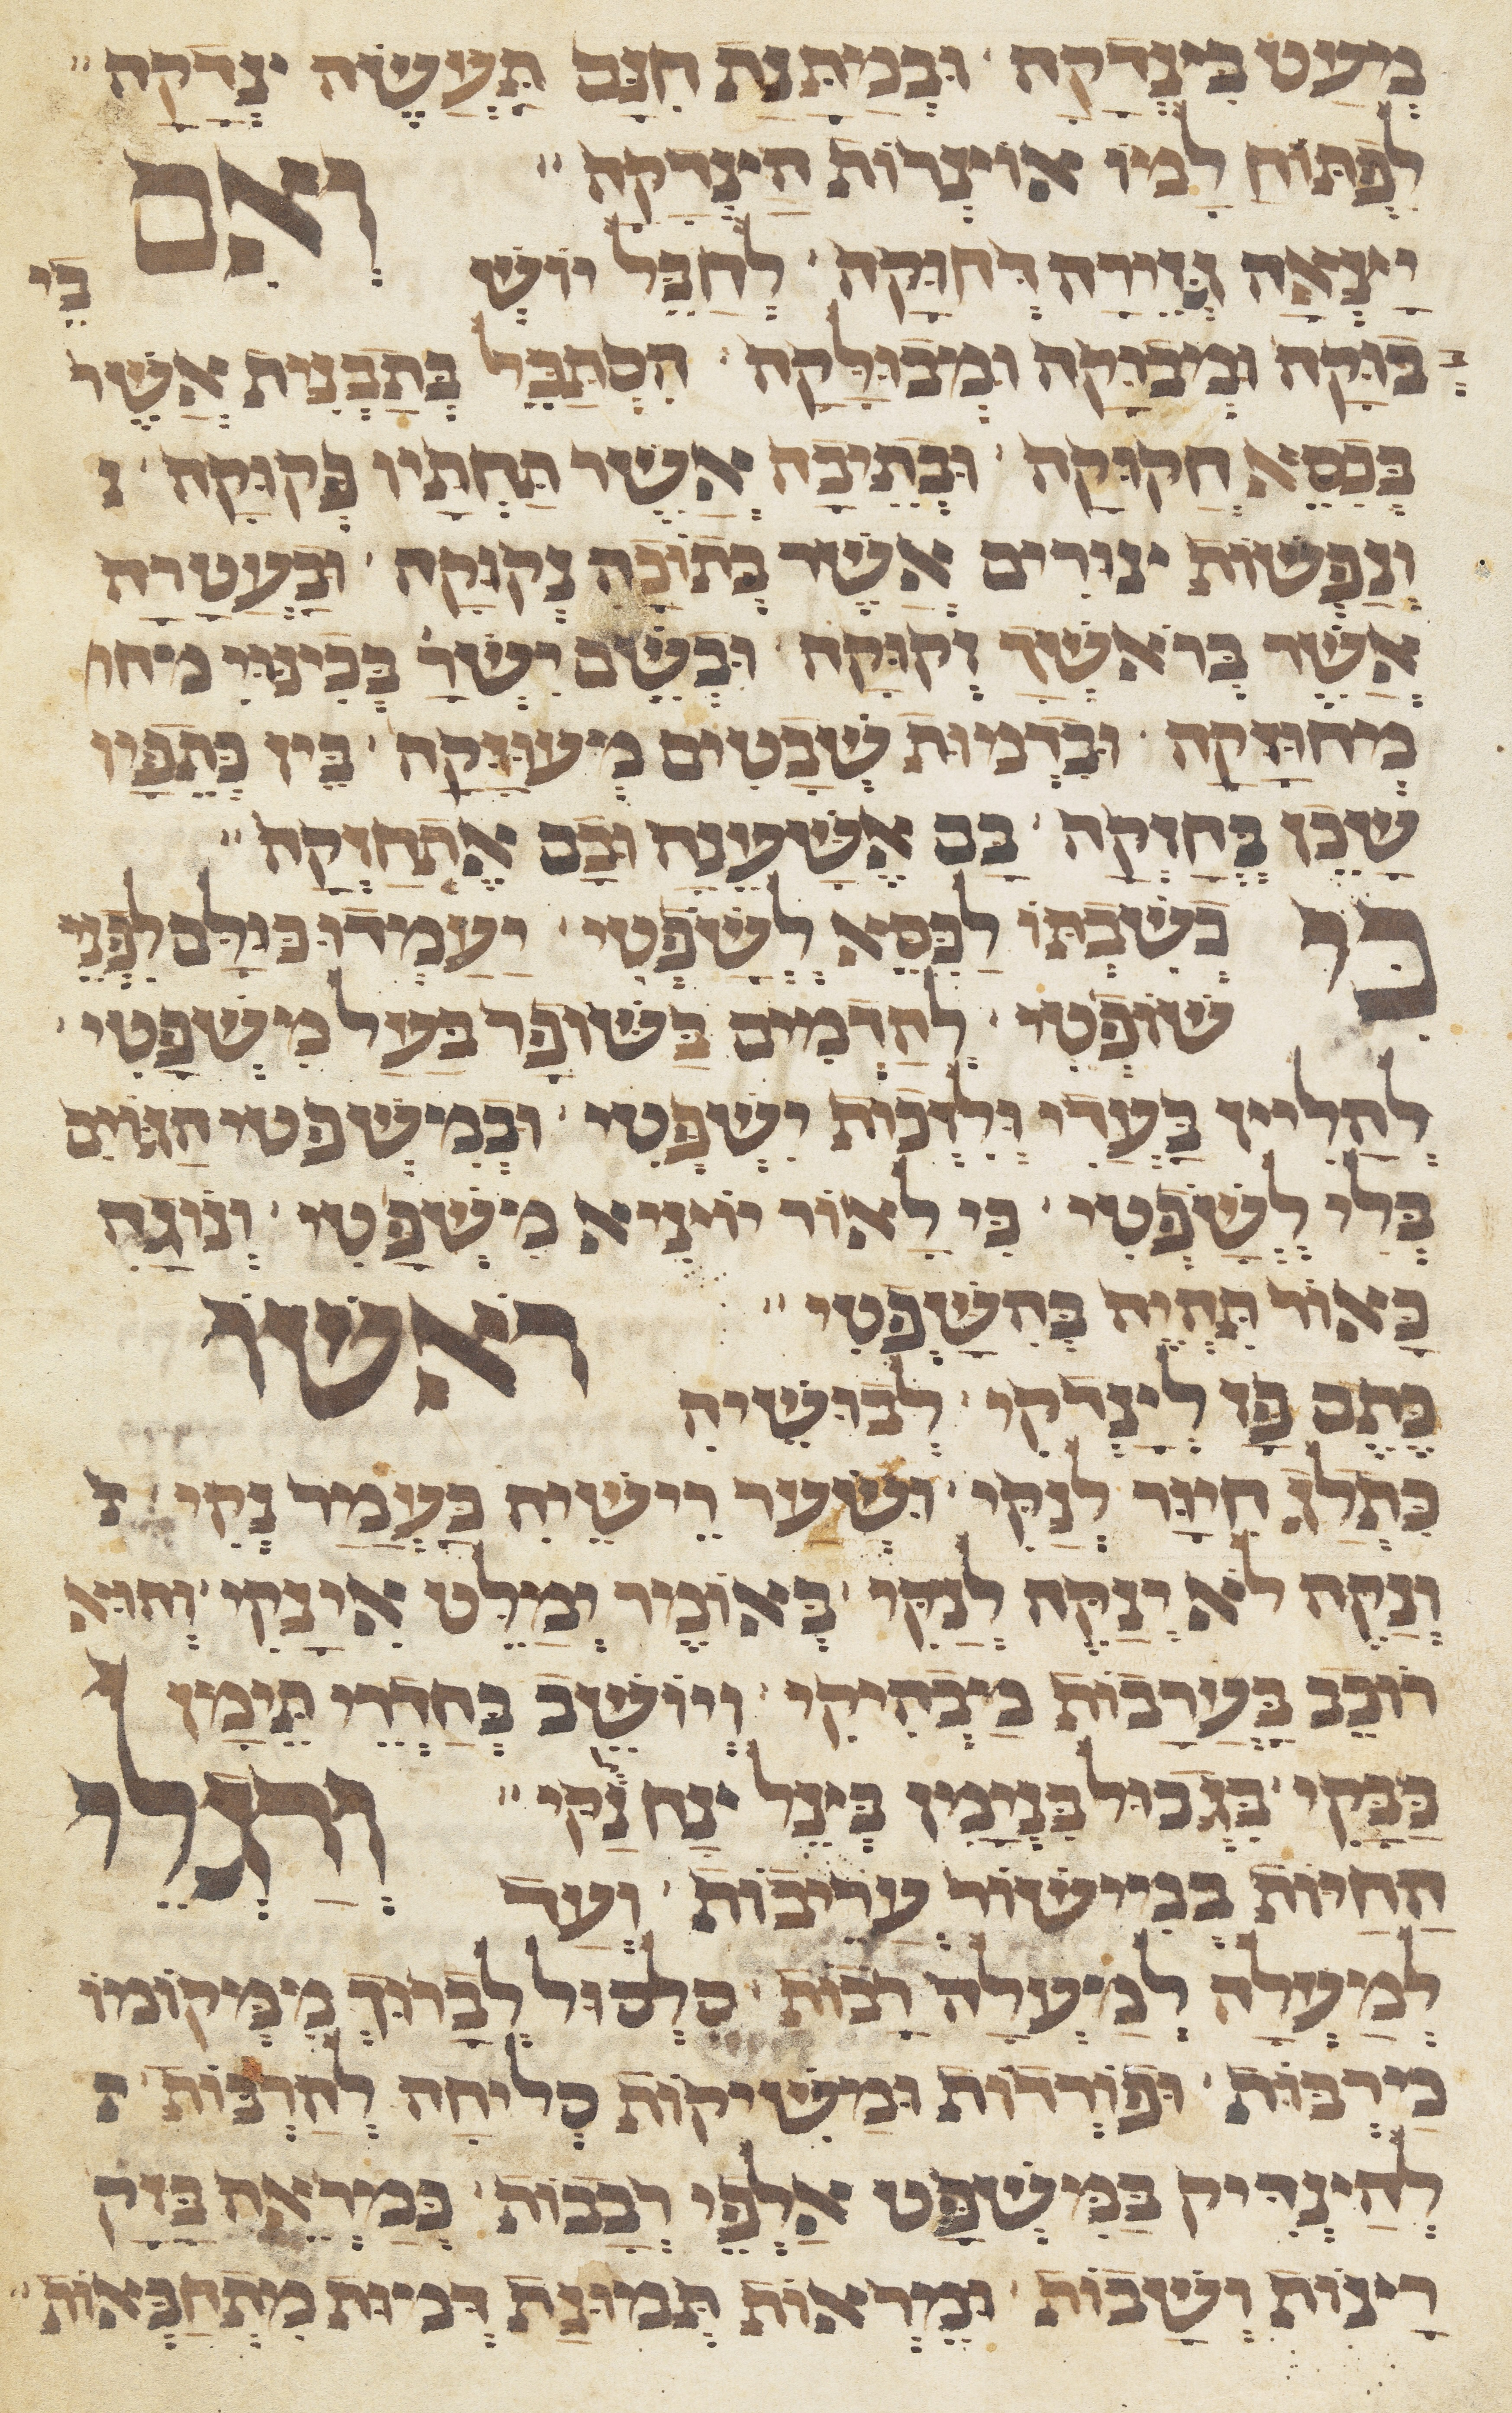 מְעַט מִצְּדָקָה · וּבְמַתְּנַת חִנָּם תַּעֲשֶׂה צְדָקָה ״
לִפְתּוֹחַ לָמוֹ אוֹצְרוֹת הַצְּדָקָה ״
וְאִם
יָצְאָה גְּזֵירָה דְּחוּקָה · לְחַבֵּל יוֹשְׁבֵי
בוּקָה וּמְבוּקָה וּמְבוּלָּקָה · הִסְתַּכֵּל בְּתַבְנִית אֲשֶׁר
בְּכִסֵּא חֲקוּקָה · וּבְתֵיבָה אֲשֶׁר תַּחְתָּיו פְּקוּקָה ·
וְנַפְשׁוֹת צוּרִים אֲשֶׁר בְּתוֹכָהּ נְקוּקָה · וּבַעֲטָרָה
אֲשֶׁר בְּרֹאשְׁךָ זְקוּקָה · וּבְשֵׁם יִשְׂרָ׳ בְּכִינּוּיִ
מְחוּזָּקָה · וּבִדְמוּת שְׁבָטִים מְעוּנָּקָה · בֵּין כְּתֵפָיו
שָׁכֵן בְּחָזְקָה · בָּם אֶשָּׁעֵנָה וּבָם אֶתְחַזְּקָה ״
בְּךָ כְּשִׁבְתּוֹ לְכִסֵּא לְשָׁפְטִי · יַעַמְדוּ כּוּלָּם לִפְנֵי
שׁוֹפְטִי · לְהַדְמִים בַּשּׁוֹפָר בַּעַל מִשְׁפָּטִי ·
לְהָלִיץ בַּעֲדִי וְלִזְכוּת יִשְׁפְּטִי · וּבְמִשְׁפְּטֵי הַגּוֹיִם
בְּלִי לְשָׁפְטִי · כִּי לָאוֹר יוֹצִיא מִשְׁפָּטִי · וְנוֹגַהּ
כָּאוֹר תִּהְיֶה בְּהִשָּׁפְטִי ״
וַאֲשֶׁר
כֶּתֶם פָּז לְצָדְקִי · לְבוּשֵׁיהּ
כִּתְלַג חִיוָּר לְנַקִּי · וּשְׂעַר רֵישֵׁיהּ כַּעֲמַר נְקִי ·
וְנַקֵּה לֹא יְנַקֶּה לְנַקִּי · בְּאוֹמֶר יְמַלֵּט אִי נָקִי · וְהוּא
רוֹכֵב בָּעֲרָבוֹת · וְיוֹשֵׁב בְּחַדְרֵי תֵימָן
וַהֲכֵלֵי
הַחַיּוֹת · וְעַד
לְמַעְלָה לְמַעְלָה רַבּוֹת · סַלְסוּל לְבָרוּךְ מִמְּקוֹמוֹ
מַרְבּוֹת · וּפוֹרְדוֹת וּמַשִּׁיקוֹת סְלִיחָה לְהַרְבּוֹת ·
לְהַצְדִּיק בַּמִּשְׁפָּט אַלְפֵי רְבָבוֹת · כְּמַרְאֵה בָּזָק
רָצוֹת וְשָׁבוֹת · וּמַרְאוֹת תְּמוּנַת דְּמוּת מִתְחַבְּאוֹת ״